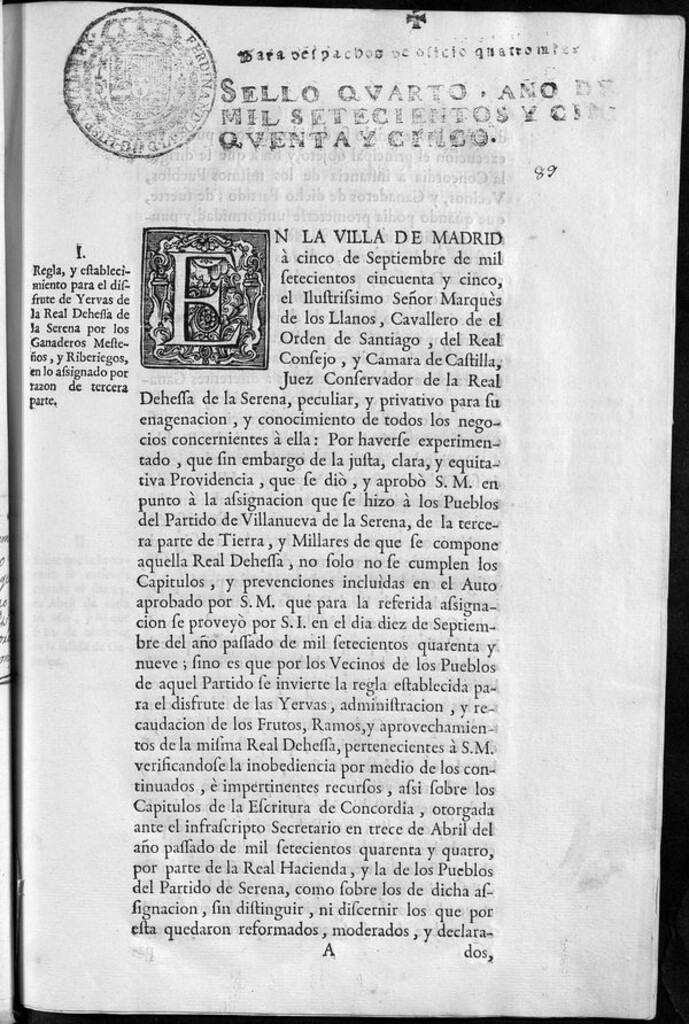 Para despachos de oficio quatro mrs.
SELLO QVARTO, AÑO DE
MIL SETECIENTOS Y CIN
QVENTA Y CINCO.
89
I.
Regla, y eſtableci-
miento para el diſ-
frute de Yervas de
la Real Deheſſa de
la Serena por los
Ganaderos Meſte-
ños, y Riberiegos,
en lo aſsignado por
razon de tercera
parte.
EN LA VILLA DE MADRID
à cinco de Septiembre de mil
ſetecientos cincuenta y cinco,
el Iluſtriſsimo Señor Marquès
de los Llanos, Cavallero de el
Orden de Santiago, del Real
Conſejo, y Camara de Caſtilla,
Juez Conſervador de la Real
Deheſſa de la Serena, peculiar, y privativo para ſu
enagenacion, y conocimiento de todos los nego-
cios concernientes à ella: Por haverſe experimen-
tado, que ſin embargo de la juſta, clara, y equita-
tiva Providencia, que ſe diò, y aprobò S. M. en
punto à la aſsignacion que ſe hizo à los Pueblos
del Partido de Villanueva de la Serena, de la terce-
ra parte de Tierra, y Millares de que ſe compone
aquella Real Deheſſa, no ſolo no ſe cumplen los
Capitulos, y prevenciones incluìdas en el Auto
aprobado por S. M. que para la referida aſsigna-
cion ſe proveyò por S. I. en el dia diez de Septiem-
bre del año paſſado de mil ſetecientos quarenta y
nueve; ſino es que por los Vecinos de los Pueblos
de aquel Partido ſe invierte la regla eſtablecida pa-
ra el disfrute de las Yervas, adminiſtracion, y re-
caudacion de los Frutos, Ramos, y aprovechamien-
tos de la miſma Real Deheſſa, pertenecientes à S.M.
verificandoſe la inobediencia por medio de los con-
tinuados, è impertinentes recurſos, aſsi ſobre los
Capitulos de la Eſcritura de Concordia, otorgada
ante el infraſcripto Secretario en trece de Abril del
año paſſado de mil ſetecientos quarenta y quatro,
por parte de la Real Hacienda, y la de los Pueblos
del Partido de Serena, como ſobre los de dicha aſ-
ſignacion, ſin diſtinguir, ni diſcernir los que por
eſta quedaron reformados, moderados, y declara-
A
dos,